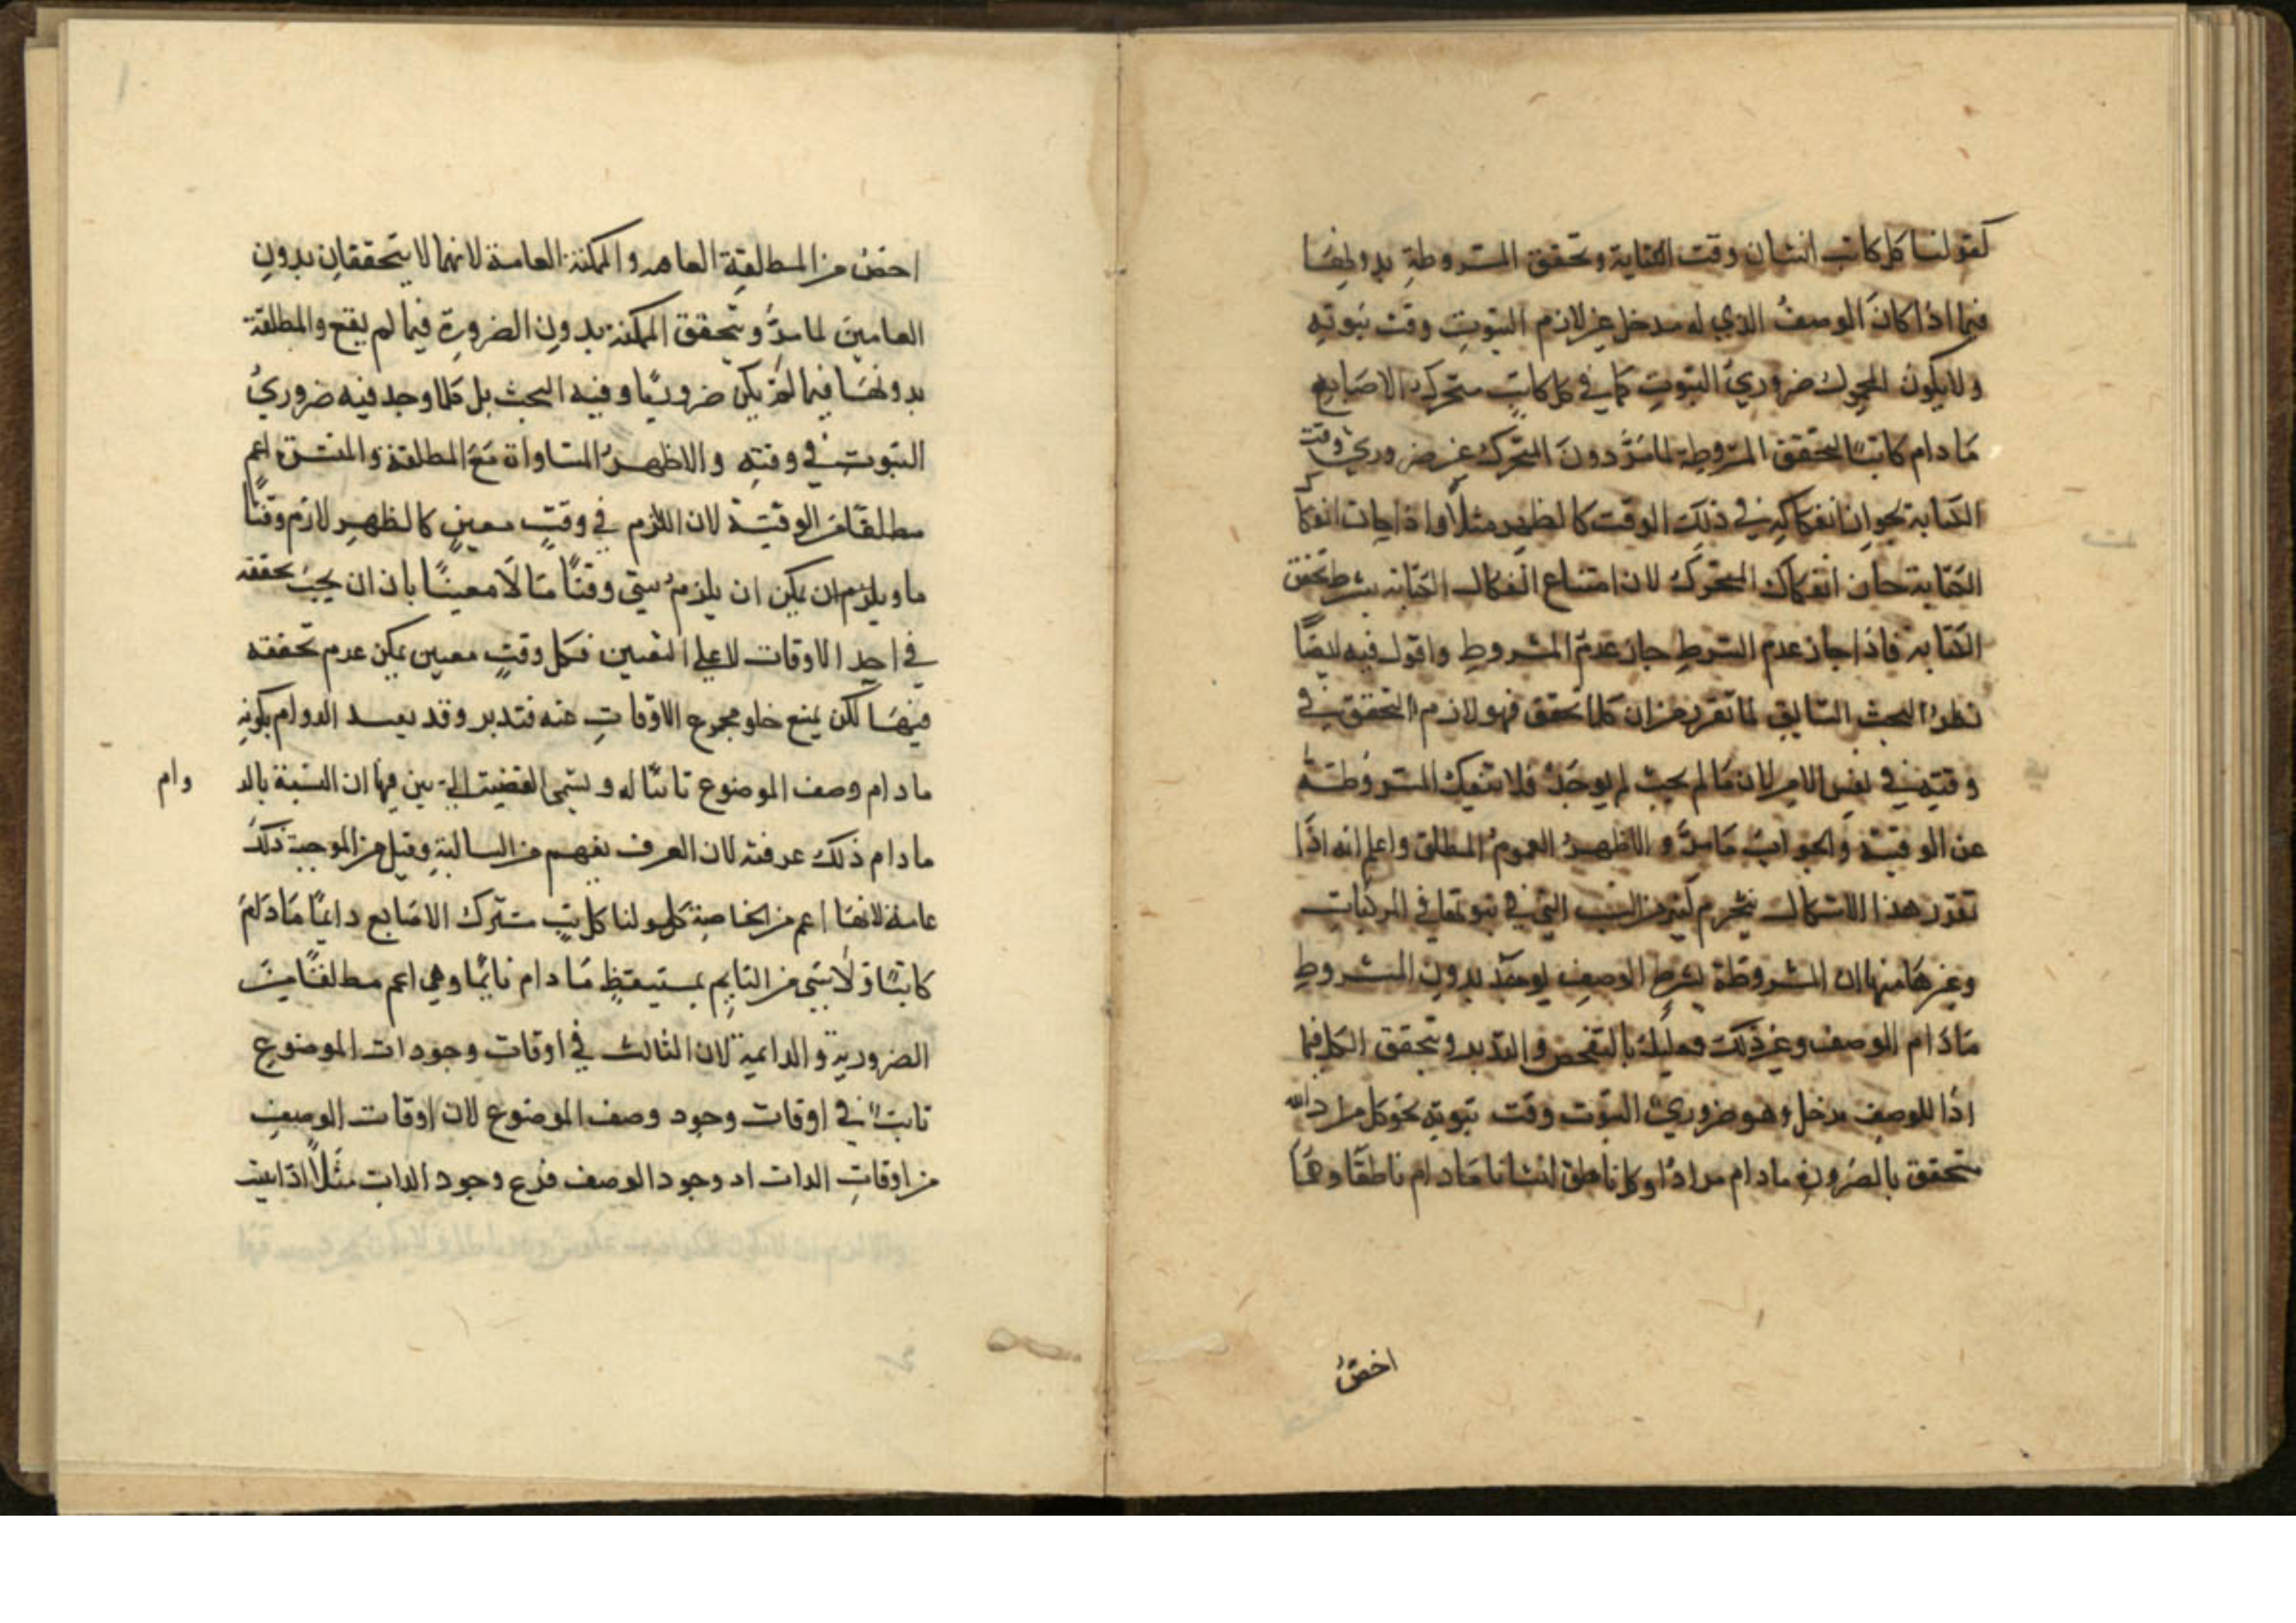 كقولنا كل كاتب انسان وقت الكتابة وتحقق المشروطة بدونها
فيما اذا كان الوصف الذي له مدخل غير لازم الثبوت وقت ثبوته
ولا يكون المحمول ضروري الثبوت كما في كل كاتب متحرك الاصابع
ما دام كاتبا لتحقق المشروطة لما مر دون التحرك غير ضروري وقت
الكتابة لجواز انفكاكه في ذلك الوقت كالظهر مثلا واذا جاز انفكاك
الكتابة جاز انفكاك التحرك لان امتناع انفكاك الكتابة بشرط تحقق
الكتابة فاذا جاز عدم الشرط جاز عدم المشروط واقول فيه ايضا
نظر البحث السابق لما تقرر من ان كلما تحقق فهو لازم التحقق في
وقته في نفس الامر لان ما لم يجب لم يوجد فلا تنفك المشروطة
عن الوقتية والجواب ما مر والاظهر العموم المطلق واعلم انه اذا
تقرر هذا الاشكال ينخرم كثير من النسب التي في ثبوتها في المركبات
وغيرها منها ان المشروطة بشرط الوصف يوجد بدون المشروط
ما دام الوصف وغير ذلك فعليك بالتفحص والتدبر وتحقق الكل فيما
اذا للوصف مدخل وهو ضروري الثبوت وقت ثبوته نحو كل مراد الله
متحقق بالضرورة ما دام مرادا وكل ناطق انسانا ما دام ناطقا وهما
اخص
اخص من المطلقة العامه والممكنة العامة لانهما لا يتحققان بدون
العامين لما مر وتحقق الممكنة بدون الضرورة فيما لم يقع والمطلقة
بدونها فيما لم يكن ضروريا وفيه البحث بل كلما وجد فيه ضروري
الثبوت في وقته والاظهر المساواة مع المطلقة والمنتشرة اعم
مطلقا من الوقتية لان اللازم في وقت معين كالظهر لازم وقتا
ما ويلزم ان يكن ان يلزم شيئ وقتا ما لا معينا بان ان يجب تحققه
في احد الاوقات لا على التعيين فكل وقت معين يمكن عدم تحققه
فيها لكن يمنع خلو مجموع الاوقات عنه فتدبر وقد يعيد الدوام بكونه
ما دام وصف الموضوع ثابتا له وتسمى القضية التي بين فيها ان النسبة بالد وام
ما دام ذلك عرفته لان العرف يفهم من السالبة وقيل من الموجبة ذلك
عامة لانها اعم من الخاصة كقولنا كل تب متحرك الاصابع دايما ما دام
كاتبا ولا شئ من النايم بمستيقظ ما دام نايما وهي اعم مطلقا من
الضرورية والدائمية لان الثالث في اوقات وجودات الموضوع
ثابت في اوقات وجود وصف الموضوع لان اوقات الوصف
من اوقات الذات اد وجود الوصف فرع وجود الذات مثلا اذا ثبت